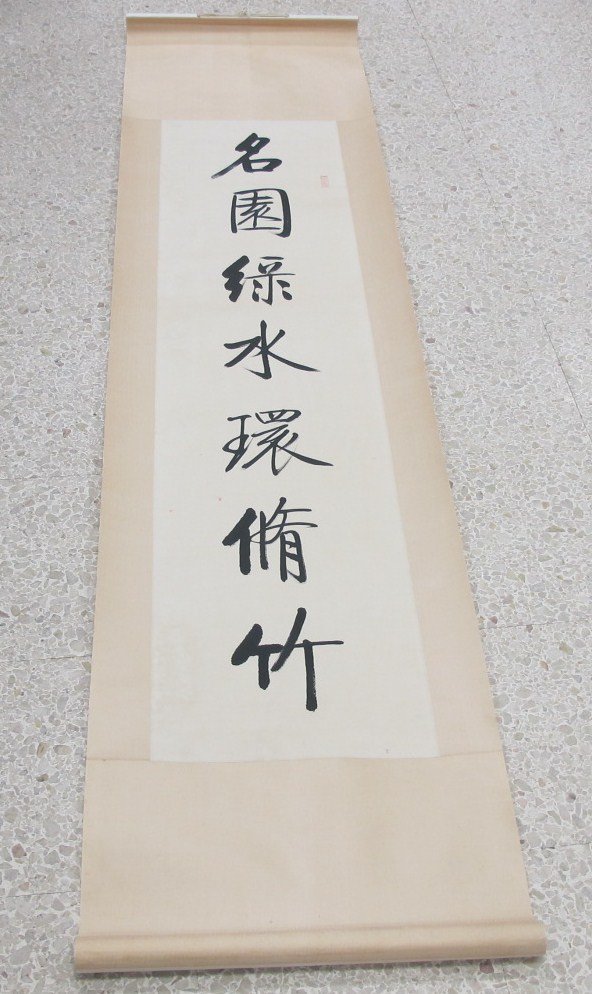 名園綠水環脩竹